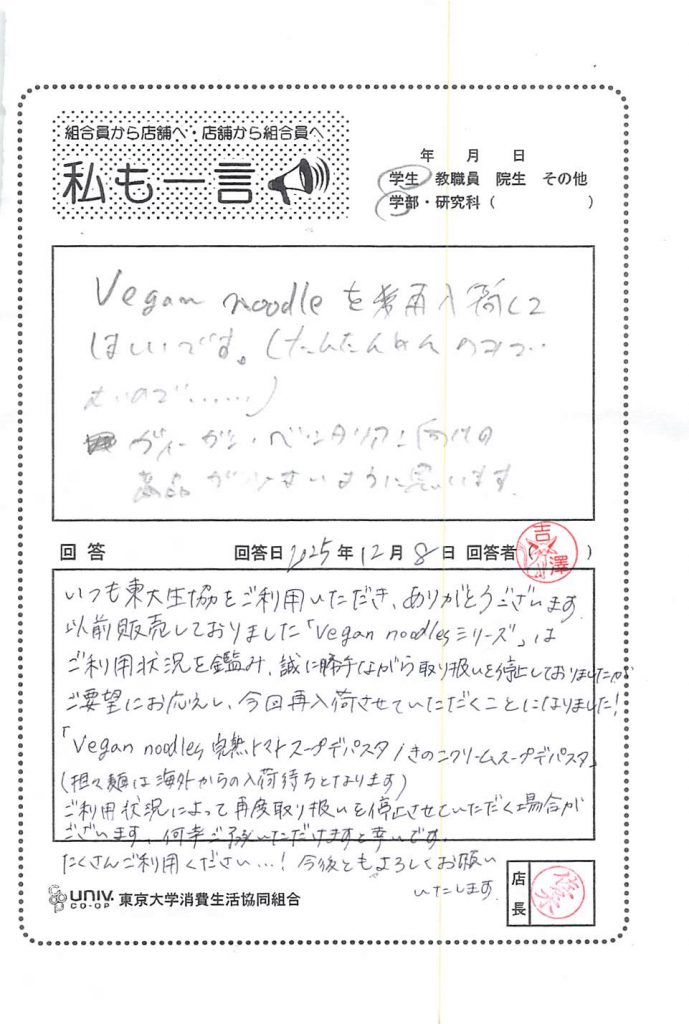 組合員から店舗へ・店舗から組合員へ
私も一言
年 月 日
学生 教職員 院生 その他
学部・研究科( )
Vegan noodle を再入荷して
ほしいです。(たんたんめん のみで‥
むいので……)
ヴィーガン・ベジタリアン向けの
商品が少ないように思います。
回答 回答日 2025年12月8日 回答者( 吉澤 )
いつも東大生協をご利用いただき、ありがとうございます
以前販売しておりました「Vegan noodlesシリーズ」は
ご利用状況を鑑み、誠に勝手ながら取り扱いを停止しておりましたが
ご要望にお応えし、今回再入荷させていただくことになりました!
「Vegan noodles 完熟トマトスープデパスタ/きのこクリームスープデパスタ」
(担々麺は海外からの入荷待ちとなります)
ご利用状況によって再度取り扱いを停止させていただく場合が
ございます、何卒ご了承いただけますと幸いです。
たくさんご利用ください…! 今後ともよろしくお願い
いたします
UNIV. CO-OP 東京大学消費生活協同組合
店長